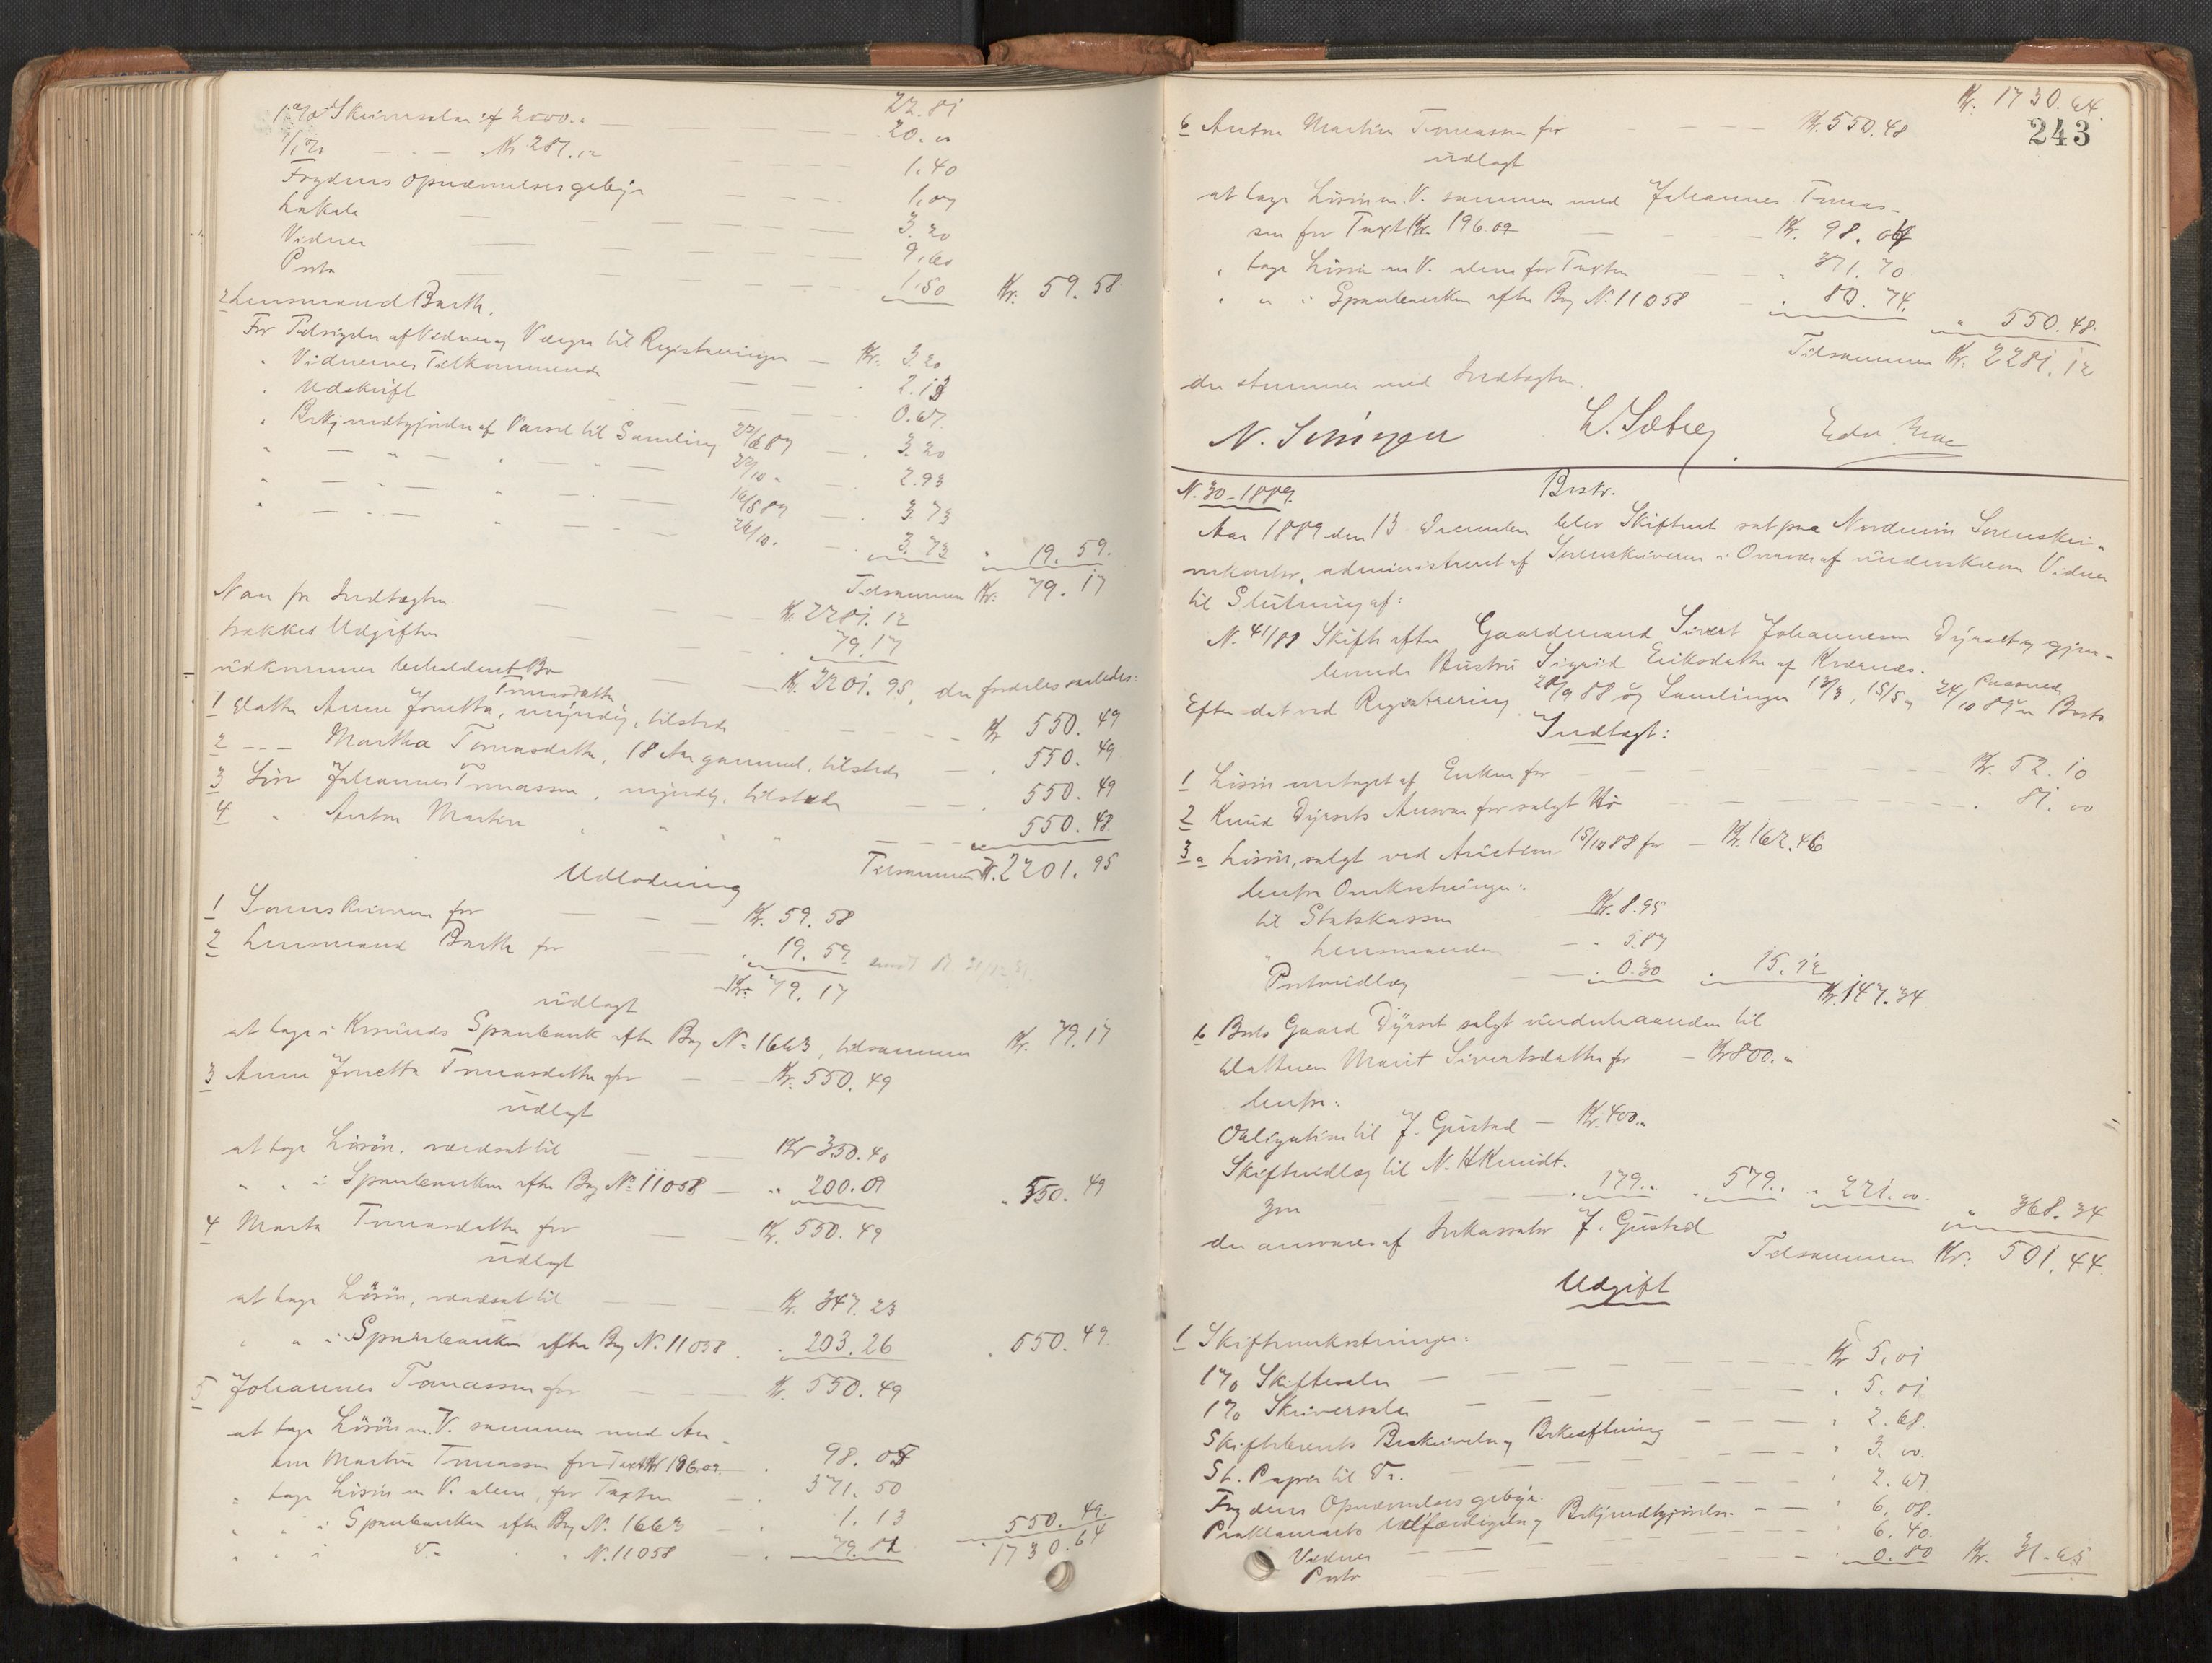 22.81
1% Skriversalær af 2000.. 20.00
1/2% — Kr 281.12 1.40
Fogdens Opnævnelsesgebyr 1.07
Lokale 3.20
Vidner 9.60
Porto 1.50 Kr. 59.58
2 Lensmand Barth.
For Tilsigelse af Vidner og Værger til Registreringen — Kr. 3.20
" Vidnernes Tilkommende 2.13
" Udskrift 0.67
" Bekjendtgjørelse af Varsel til Samling 3.20
" — " — " — " 27/10 " — 2.93
" — " — " — " 16/5 89 — 3.73
" — " — " — 26/10. — 3.73 " 19.59.
Tilsammen Kr. 79.17
Naar fra Indtægten Kr. 2281.12
trækkes Udgiften 79.17
udkommer beholdent Bo Kr. 2201.95, der fordeles saaledes:
Tomasdatter
1 Datter Anne Jonetta, myndig, tilstede Kr 550.49
2 — Martha Tomasdatter, 18 Aar gammel, tilstede " 550.49
3 Søn Johannes Tomassen, myndig, tilstede 550.49
4 " Anton Martin " " " 550.48
Tilsammen Kr. 2201.95
Udlodning
1 Sorenskriveren for Kr. 59.58
2 Lensmand Barth for 19.59
Kr. 79.17
udlagt
at tage i Kvernæs Sparebank efter Bog No 1663, tilsammen Kr. 79.17
3 Anne Jonetta Tomasdatter for Kr. 550.49
udlagt
at tage Løsøre, værdsat til Kr 350.40
" " i Sparebanken efter Bog No 11058 — " 200.09 " 550.49
4 Marta Tomasdatter for Kr. 550.49
udlagt
at tage Løsøre, værdsat til Kr. 347.23
" " i Sparebanken efter Bog N. 11058 " 203.26 " 550.49
5 Johannes Tomassen for Kr. 550.49
at tage Løsøre m. V. sammen med An-
ton Martin Tomassen for Taxt Kr 196.09 98.05
" tage Løsøre m V. alene, for Taxten 371.50
" " i Sparebanken efter Bog N. 1663 1.13
" " " Do " " N. 11058 79.81 550.49
1730.64
Kr. 1730.64
243
6 Anton Martin Tomassen for Kr. 550.48
udlagt
at tage Løsøre m. V. sammen med Johannes Tomas-
sen for Taxt Kr. 196.09 Kr. 98.04
" tage Løsøre m V. alene for Taxten " 371.70
" " i Sparebanken efter Bog N. 11058 " 80.74 " 550.48
Tilsammen Kr. 2281.12
der stemmer med Indtægten.
N. 30 - 1889. Bestr.
Aar 1889 den 13 December blev Skifteret sat paa Nordmøre Sorenskri-
verkontor, administreret af Sorenskriveren i Overvær af underskrevne Vidner
til Slutning af:
N. 41/88 Skifte efter Gaardmand Sivert Johannesen Dyrset og gjen-
levende Hustru Sigrid Eriksdatter af Kvernæs.
Passerede
Efter det ved Registrering 20/9 88 og Samlinger 13/3, 15/5 og 24/10 89 er Boets
Indtægt:
1 Løsøre modtaget af Enken for Kr. 52.10
2 Knud Dyrsets Ansvar for solgt Hø " 81.00
3 a Løsøre, solgt ved Auction 15/10 88 for — Kr. 162.46
herfra Omkostninger:
til Statskassen Kr. 8.95
" Lensmanden — " 5.87
Portoudlæg " 0.30 " 15.12
Kr. 147.34
b Boets Gaard Dyrset solgt underhaanden til
Datteren Marit Sivertsdatter for — Kr 800.00
herfra:
Obligation til J. Gustad — Kr. 400..
Skifteudlæg til N. H Knudt-
zon " 179.. " 579.. " 221.00 " 368.34
der ansvares af Inkassator J. Gustad
Tilsammen Kr. 501.44
Udgift
1 Skifteomkostninger:
1% Skiftesalær Kr 5.01
1% Skriversalær " 5.01
Skiftebrevets Beskrivelse og Bekræftning " 2.68
St. Papir til Do. " 3.00
Fogdens Opnævnelsesgebyr. " 2.67
Proklamaets Udfærdigelse og Bekjendtgjørelse. — " 6.08
Vidner 6.40
Porto " 0.80 Kr. 31.65